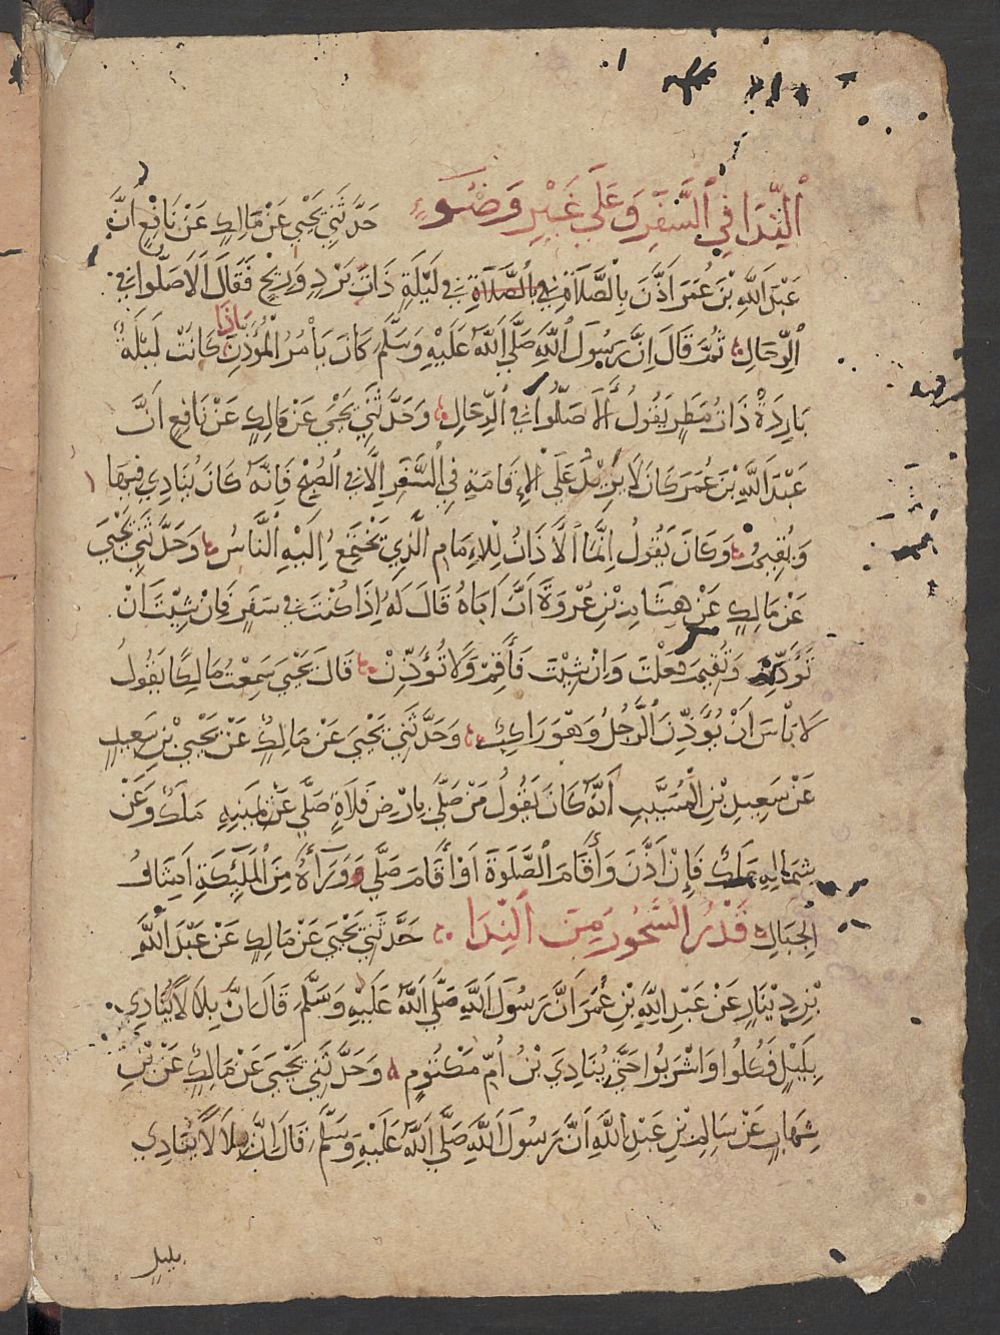 اَلنِّدَا فِي اَلسَّفَرِ وَعَلَى غَيْرِ وَضُوءٍ حَدَّثَنِي يَحْيَى عَنْ مَالِكٍ عَنْ نَافِعٍ أَنَّ
عَبْدَ اَللَّهِ بْنَ عُمَرَ أَذَّنَ بِالصَّلَاةِ فِي بِالصَّلَاةِ فِي لَيْلَةٍ ذَاتِ بَرْدٍ وَرِيحٍ فَقَالَ أَلَا صَلُّوا فِي
اَلرِّحَالِ ثُمَّ قَالَ إِنَّ رَسُولَ اَللَّهِ صَلَّى اَللَّهُ عَلَيْهِ وَسَلَّمَ كَانَ يَأْمُرُ الْمُؤَذِّنَ إِذَا كَانَتْ لَيْلَةٌ
بَارِدَةٌ ذَاتُ مَطَرٍ يَقُولُ أَلَا صَلُّوا فِي اَلرِّحَالِ وَحَدَّثَنِي يَحْيَى عَنْ مَالِكٍ عَنْ نَافِعٍ أَنَّ
عَبْدَ اَللَّهِ بْنَ عُمَرَ كَانَ لَا يَزِيدُ عَلَى الْإِقَامَةِ فِي اَلسَّفَرِ إِلَّا فِي الصُّبْحِ فَإِنَّهُ كَانَ يُنَادِي فِيهَا
وَيُقِيمُ وَكَانَ يَقُولُ إِنَّمَا اَلْأَذَانُ لِلْإِمَامِ الَّذِي يَجْتَمِعُ إِلَيْهِ اَلنَّاسُ وَحَدَّثَنِي يَحْيَى
عَنْ مَالِكٍ عَنْ هِشَامِ بْنِ عُرْوَةَ أَنَّ أَبَاهُ قَالَ لَهُ إِذَا كُنْتَ فِي سَفَرٍ فَإِنْ شِئْتَ أَنْ
تُؤَذِّنَ وَتُقِيمَ فَعَلْتَ وَإِنْ شِئْتَ فَأَقِمْ وَلَا تُؤَذِّنْ قَالَ يَحْيَى سَمِعْتُ مَالِكًا يَقُولُ
لَا بَأْسَ أَنْ يُؤَذِّنَ اَلرَّجُلُ وَهْوَ رَاكِبٌ وَحَدَّثَنِي يَحْيَى عَنْ مَالِكٍ عَنْ يَحْيَى بْنِ سَعِيدٍ
عَنْ سَعِيدِ بْنِ الْمُسَيَّبِ أَنَّهُ كَانَ يَقُولُ مَنْ صَلَّى بِأَرْضِ فَلَاةٍ صَلَّى عَنْ يَمِينِهِ مَلَكٌ وَعَنْ
شِمَالِهِ مَلَكٌ فَإِنْ أَذَّنَ وَأَقَامَ اَلصَّلَوةَ أَوْ أَقَامَ صَلَّى وَرَآءَهُ مِنَ الْمَلَئِكَةِ أَمْثَالُ
اَلْجِبَالِ قَدْرُ السَّحُورِ مِنَ اَلنِّدَا حَدَّثَنِي يَحْيَى عَنْ مَالِكٍ عَنْ عَبْدِ اَللَّهِ
بْنِ دِينَارٍ عَنْ عَبْدِ اللَّهِ بْنِ عُمَرَ أَنَّ رَسُولَ اَللَّهِ صَلَّى اَللَّهُ عَلَيْهِ وَسَلَّمَ قَالَ إِنَّ بِلَالًا يُنَادِي
بِلَيْلٍ فَكُلُوا وَاشْرَبُوا حَتَّى يُنَادِيَ بْنُ أُمِّ مَكْتُومٍ وَحَدَّثَنِي يَحْيَى عَنْ مَالِكٍ عَنْ بْنِ
شِهَابٍ عَنْ سَالِمِ بْنِ عَبْدِ اللَّهِ أَنَّ رَسُولَ اَللَّهِ صَلَّى اَللَّهُ عَلَيْهِ وَسَلَّمَ قَالَ إِنَّ بِلَالًا يُنَادِي
بليل